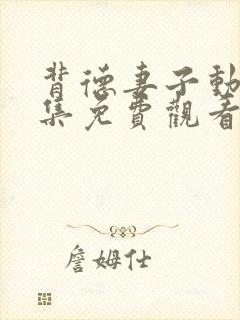 背德妻子動
集免費觀看
詹姆仕